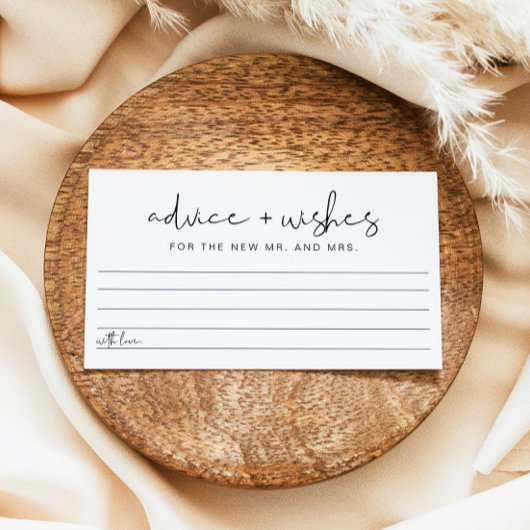 advice + wishes
FOR THE NEW MR. AND MRS.
with love,